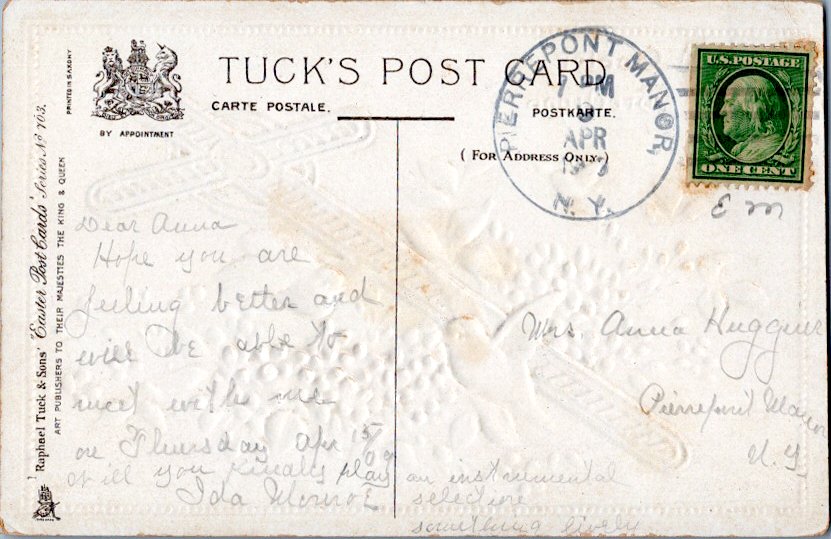 TUCK'S POST CARD
CARTE POSTALE.
POSTKARTE.
(FOR ADDRESS ONLY.)
BY APPOINTMENT
PRINTED IN SAXONY
Raphael Tuck & Sons' "Easter Post Cards" Series No 703.
ART PUBLISHERS TO THEIR MAJESTIES THE KING & QUEEN
PIERREPONT MANOR
7 PM
APR
N.Y.
U.S.POSTAGE
ONE CENT
E m
Dear Anna
Hope you are
feeling better and
will be able to
meet with us
on Thursday Apr 15/09
Will you kindly play an instrumental
selection
something lively
Ida Monroe
Mrs. Anna Huggins
Pierrepont Manor
N.Y.